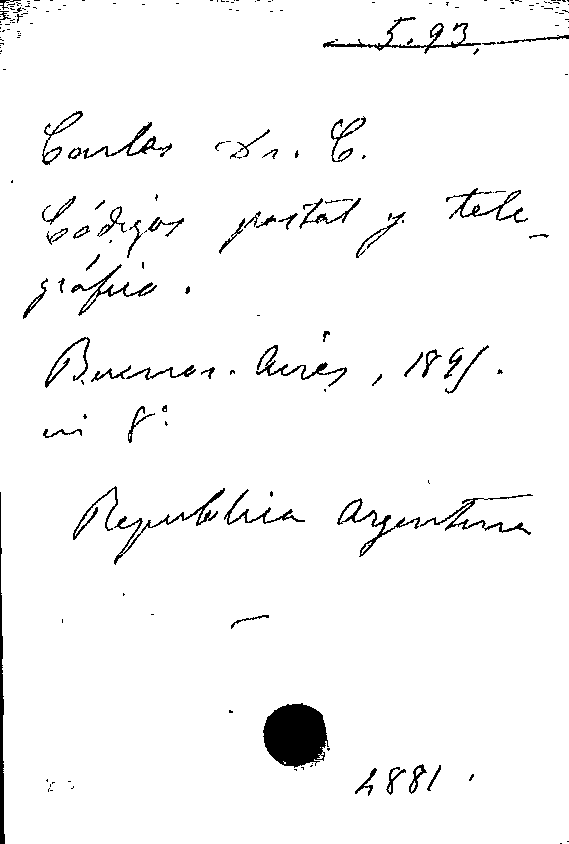 5.93.
Carlos Dr. C.
Códigos postal y tele-
gráfico.
Buenos-Aires, 1891.
in 8°
Republica Argentina
4881.